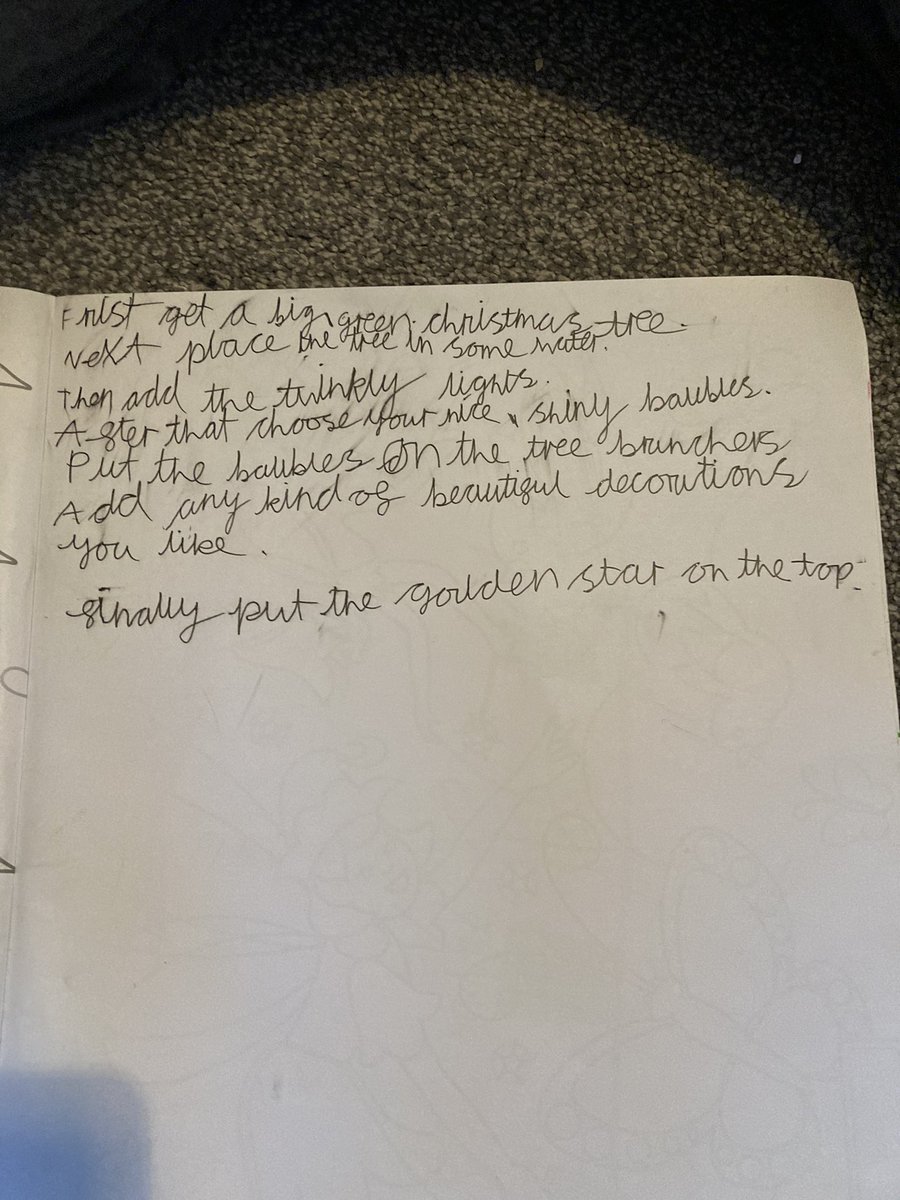 Frist get a big green christmas tree.
Next place the tree in some water.
Then add the twinkly lights.
After that choose your nice, shiny baubles.
Put the baubles On the tree brunchers
Add any kind of beautiful decorutions
you like.
finally put the goulden star on the top.